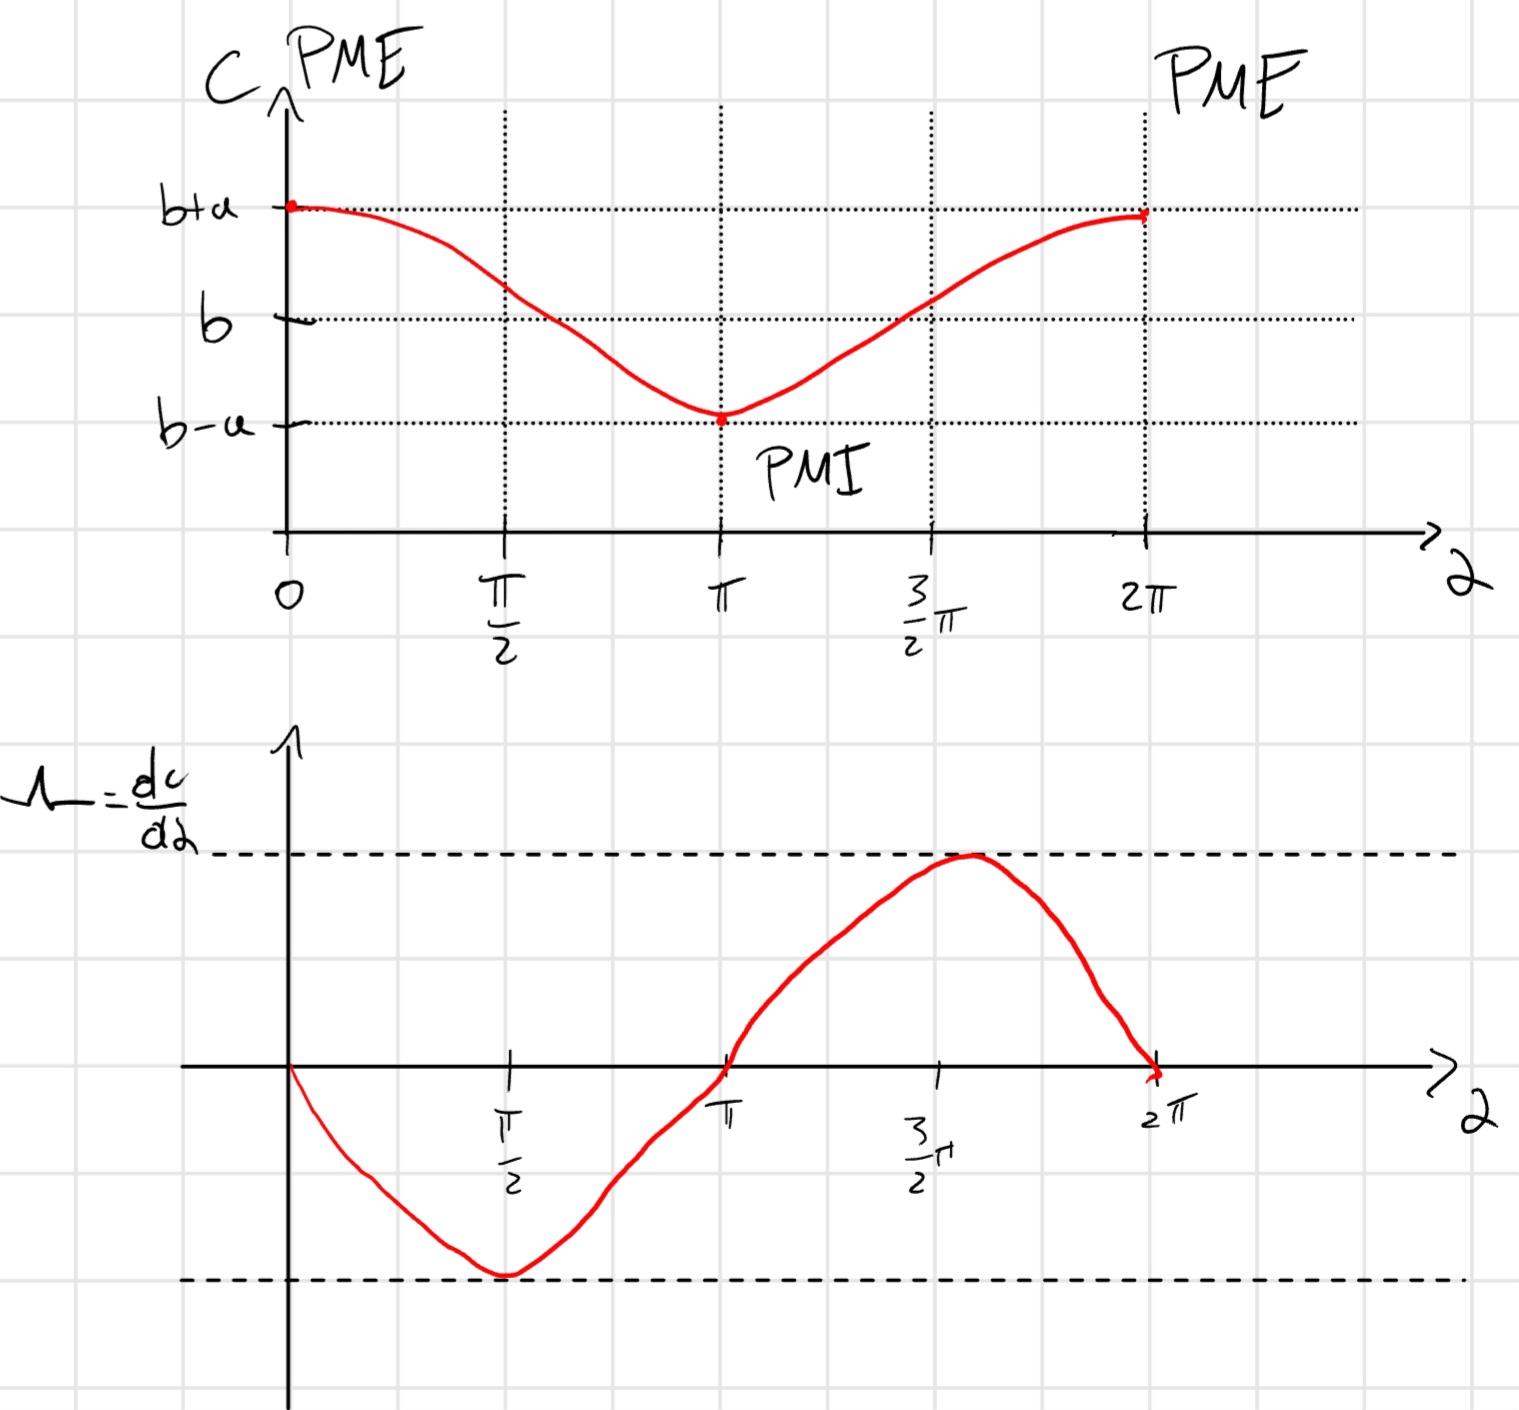 C PME PME
b+a
b
b-a
PMI
0 π/2 π 3/2 π 2π α
= dc/dα
π/2 π 3/2 π 2π α